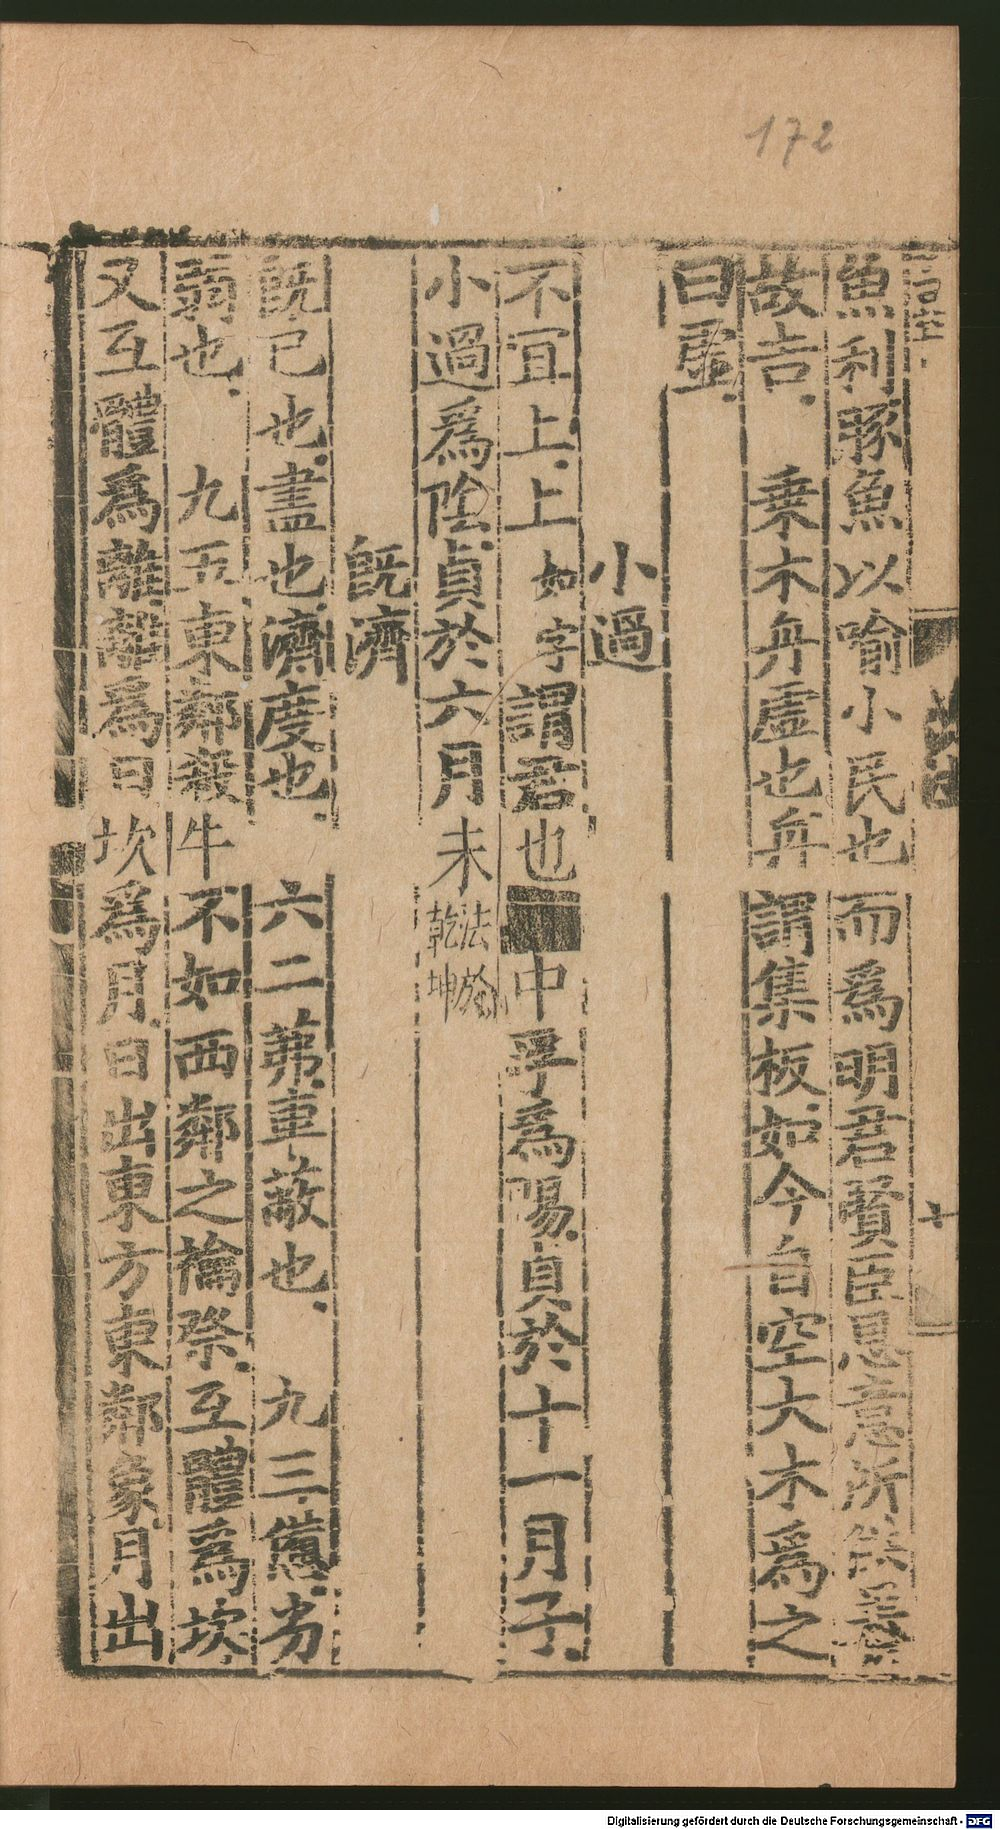 172
魚利豚魚以喻小民也而爲明君賢臣恩意所供養
故吉 乗木舟虛也舟謂集板如今自空大木爲之
曰虛
小過
不宜上上如字謂君也 中孚爲陽貞於十一月子
小過爲陰貞於六月未法於乾坤
旣濟
旣已也盡也濟度也 六二茀車蔽也 九三憊劣
弱也 九五東鄰殺牛不如西鄰之禴祭互體爲坎
又互體爲離離爲日坎爲月日出東方東鄰象月出
十
Digitalisierung gefördert durch die Deutsche Forschungsgemeinschaft - DFG